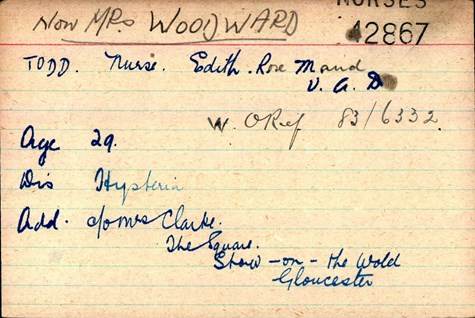 NURSES
42867
Now MRS WOODWARD
TODD. Nurse. Edith. Rose Maud
V. A. D
W. O Ref 83/6332
Age 29.
Dis Hysteria
Add. c/o Mrs Clarke.
The Square.
Stow-on-the Wold
Gloucester